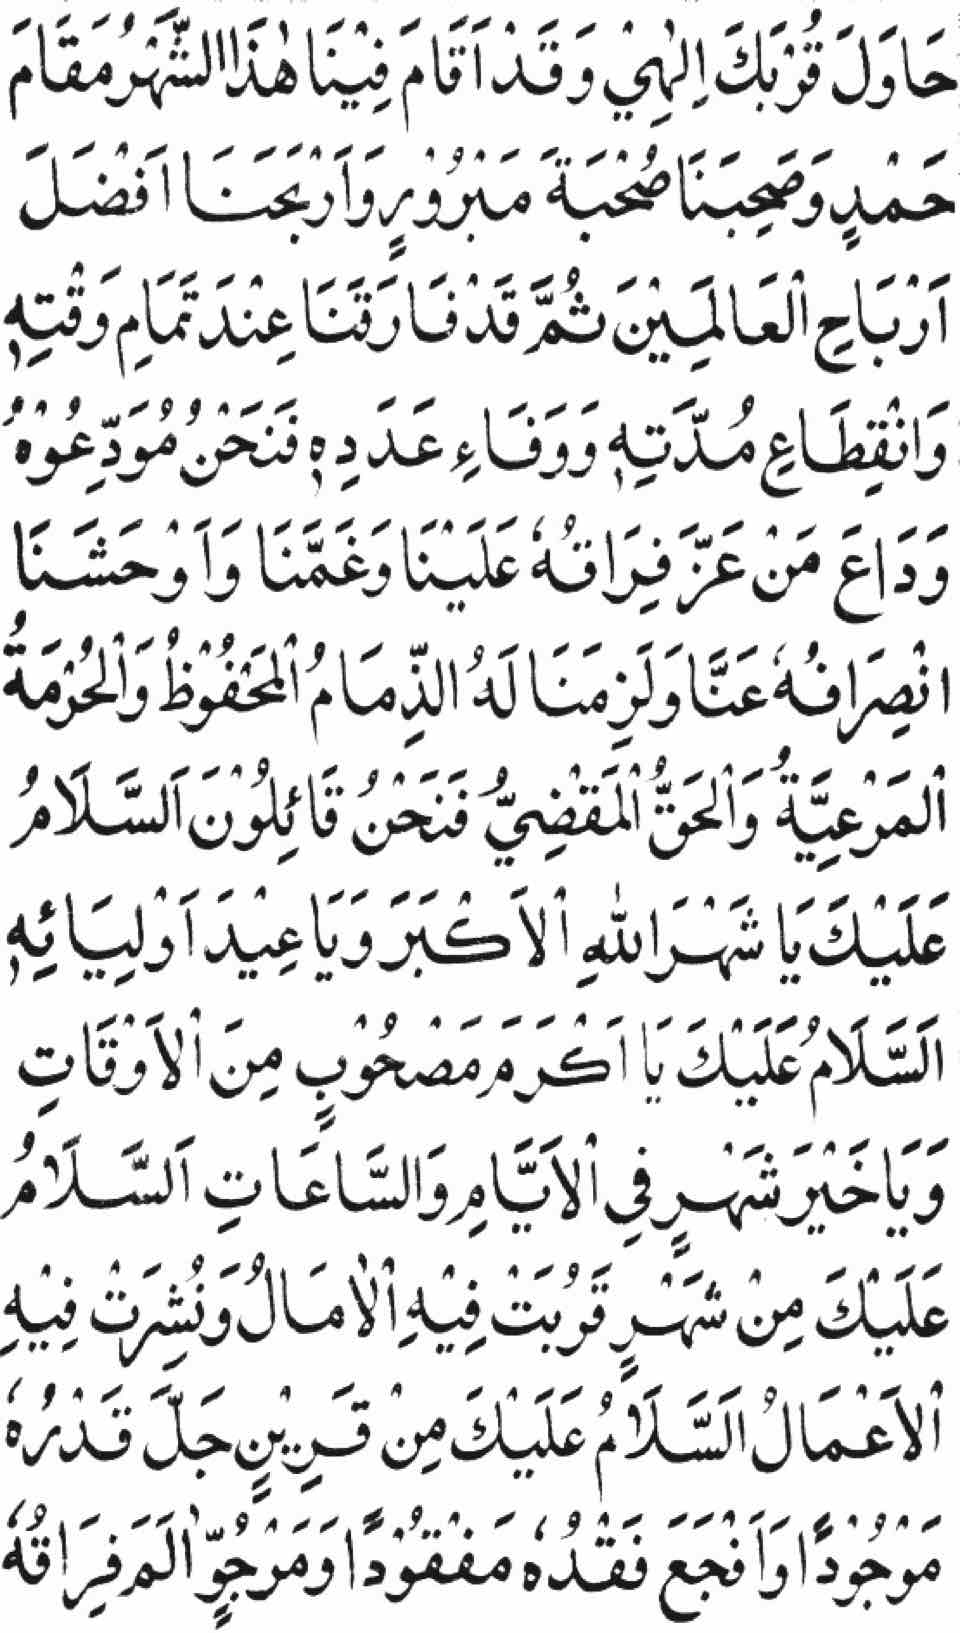 حَاوَلَ قُرْبَكَ اِلٰهِيْ وَقَدْ اَقَامَ فِيْنَا هٰذَا الشَّهْرُ مَقَامَ
حَمْدٍ وَصَحِبَنَا صُحْبَةَ مَبْرُوْرٍ وَاَرْبَحَنَا اَفْضَلَ
اَرْبَاحِ الْعَالَمِيْنَ ثُمَّ قَدْ فَارَقَنَا عِنْدَ تَمَامِ وَقْتِهٖ
وَانْقِطَاعِ مُدَّتِهٖ وَوَفَاءِ عَدَدِهٖ فَنَحْنُ مُوَدِّعُوْهُ
وَدَاعَ مَنْ عَزَّ فِرَاقُهٗ عَلَيْنَا وَغَمَّنَا وَاَوْحَشَنَا
انْصِرَافُهٗ عَنَّا وَلَزِمَنَا لَهُ الذِّمَامُ الْمَحْفُوْظُ وَالْحُرْمَةُ
الْمَرْعِيَّةُ وَالْحَقُّ الْمَقْضِيُّ فَنَحْنُ قَائِلُوْنَ اَلسَّلَامُ
عَلَيْكَ يَا شَهْرَ اللهِ الْاَكْبَرَ وَيَا عِيْدَ اَوْلِيَائِهٖ
اَلسَّلَامُ عَلَيْكَ يَا اَكْرَمَ مَصْحُوْبٍ مِنَ الْاَوْقَاتِ
وَيَا خَيْرَ شَهْرٍ فِي الْاَيَّامِ وَالسَّاعَاتِ اَلسَّلَامُ
عَلَيْكَ مِنْ شَهْرٍ قَرُبَتْ فِيْهِ الْاٰمَالُ وَنُشِرَتْ فِيْهِ
الْاَعْمَالُ اَلسَّلَامُ عَلَيْكَ مِنْ قَرِيْنٍ جَلَّ قَدْرُهٗ
مَوْجُوْدًا وَاَفْجَعَ فَقْدُهٗ مَفْقُوْدًا وَمَرْجُوٍّ اٰلَمَ فِرَاقُهٗ